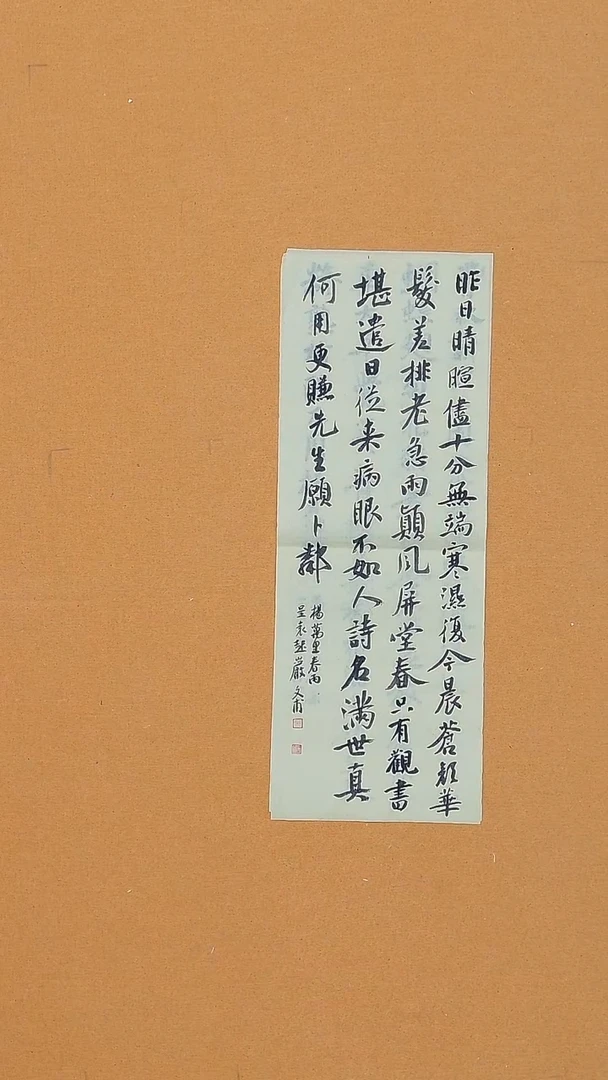 昨日晴暄儘十分無端寒濕復今晨蒼顏華
髮差排老急雨顛風屏堂春只有觀書
堪遣日從来病眼不如人詩名滿世真
何用更賺先生願卜鄰
楊萬里春雨
呈袁起巖 文甫